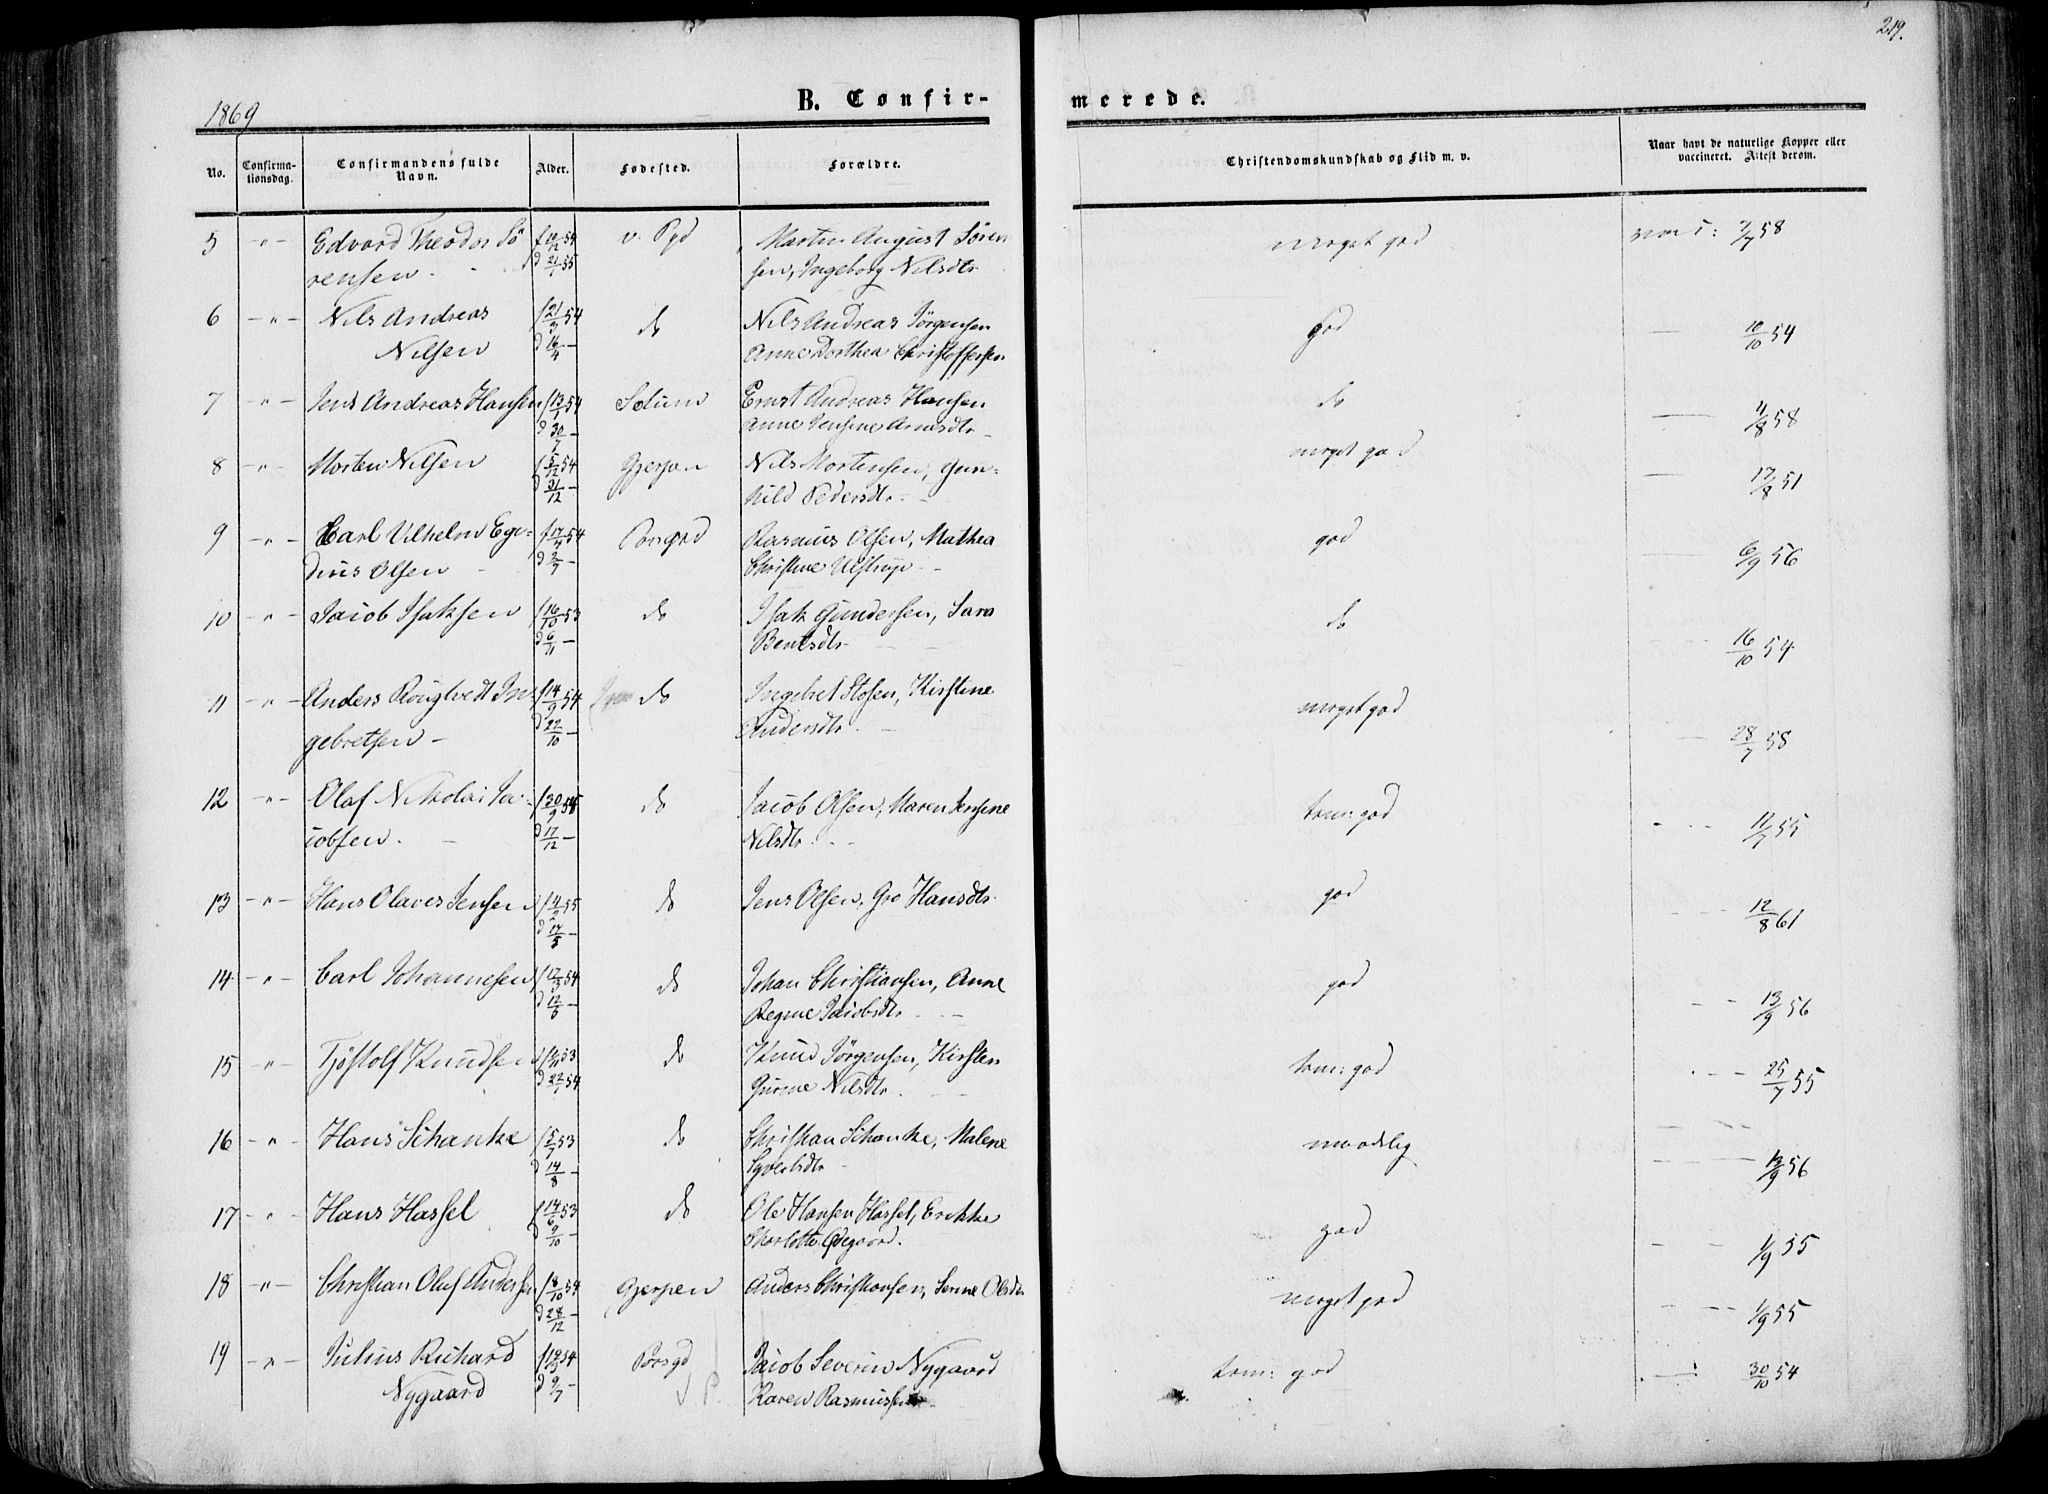 219.
1869
B. Confir-
merede.
No.
Confirma-
tionsdag.
Confirmandens fulde
Navn.
Alder.
Fødested.
Forældre.
Christendomskundskab og Flid m. v.
Naar havt de naturlige Kopper eller
vaccineret. Attest derom.
5 -"- Edvard Theodor Sö f 10/12 54 v. Pgd Martin August Sören meget god vacc: 7/7 58
rensen. d 21/1 55 sen, Ingeborg Nilsdtr
6 -"- Nils Andreas f 21/3 54 do Nils Andreas Jörgensen god 10/10 54
Nilsen d 16/4 - Anne Dorthea Christoffersen
7 -"- Jens Andreas Hansen f 13/1 54 Solum Ernst Andreas Hansen do 4/8 58
d 30/7 - Anne Jensine Arnesdtr
8 -"- Morten Nilsen f 5/12 54 Gjerpen Nils Mortensen, Gun= meget god 17/8 51
d 31/12 - hild Pedersdtr
9 -"- Carl Vilhelm Ege= f 17/4 54 Porsgrd Rasmus Olsen, Mathea god 6/9 56
dius Olsen d 2/7 - Christine Ulstrup
10 -"- Jacob Isaksen f 16/10 53 do Isak Gundersen, Sara do 16/10 54
d 6/11 - Bentsdtr
11 -"- Anders Rougtvedt In= f 14/9 54 do Ingebret Stosen, Kirstine meget god 28/7 58
gebretsen d 22/10 - Andersdtr
12 -"- Olaf Nikolai Ja= f 30/9 54 do Jacob Olsen, Maren Jensine tem: god 11/7 55
cobsen. d 17/12 - Nilsdtr
13 -"- Hans Olaves Jensen f 4/2 55 do Jens Olsen, Gro Hansdtr god 12/8 61
d 17/5 -
14 -"- Carl Johannesen f 17/3 54 do Johan Christiansen, Anne god 13/9 56
d 12/5 - Regine Jacobsdtr
15 -"- Tjöstolf Knudsen 53 do Knud Jörgensen, Kirsten tem: god 25/7 55
d 22/1 54 Gurine Nilsdtr
16 -"- Hans Schanke f 5/7 53 do Christian Schanke, Malene maadelig 13/9 56
d 14/8 - Syvertsdtr
17 -"- Hans Hassel f 14/6 53 do Ole Hansen Hassel, Erikke god 1/9 55
d 9/10 - Charlotte Ødegaard.
18 -"- Christian Oluf Andersen f 8/10 54 Gjerpen Anders Christiansen, Olsdtr meget god 1/9 55
d 28/12
19 -"- Julius Richard f 19/3 54 Porsgd Jacob Severin Nygaard tem: god 30/10 54
Nygaard d 9/7 - Karen Rasmussen